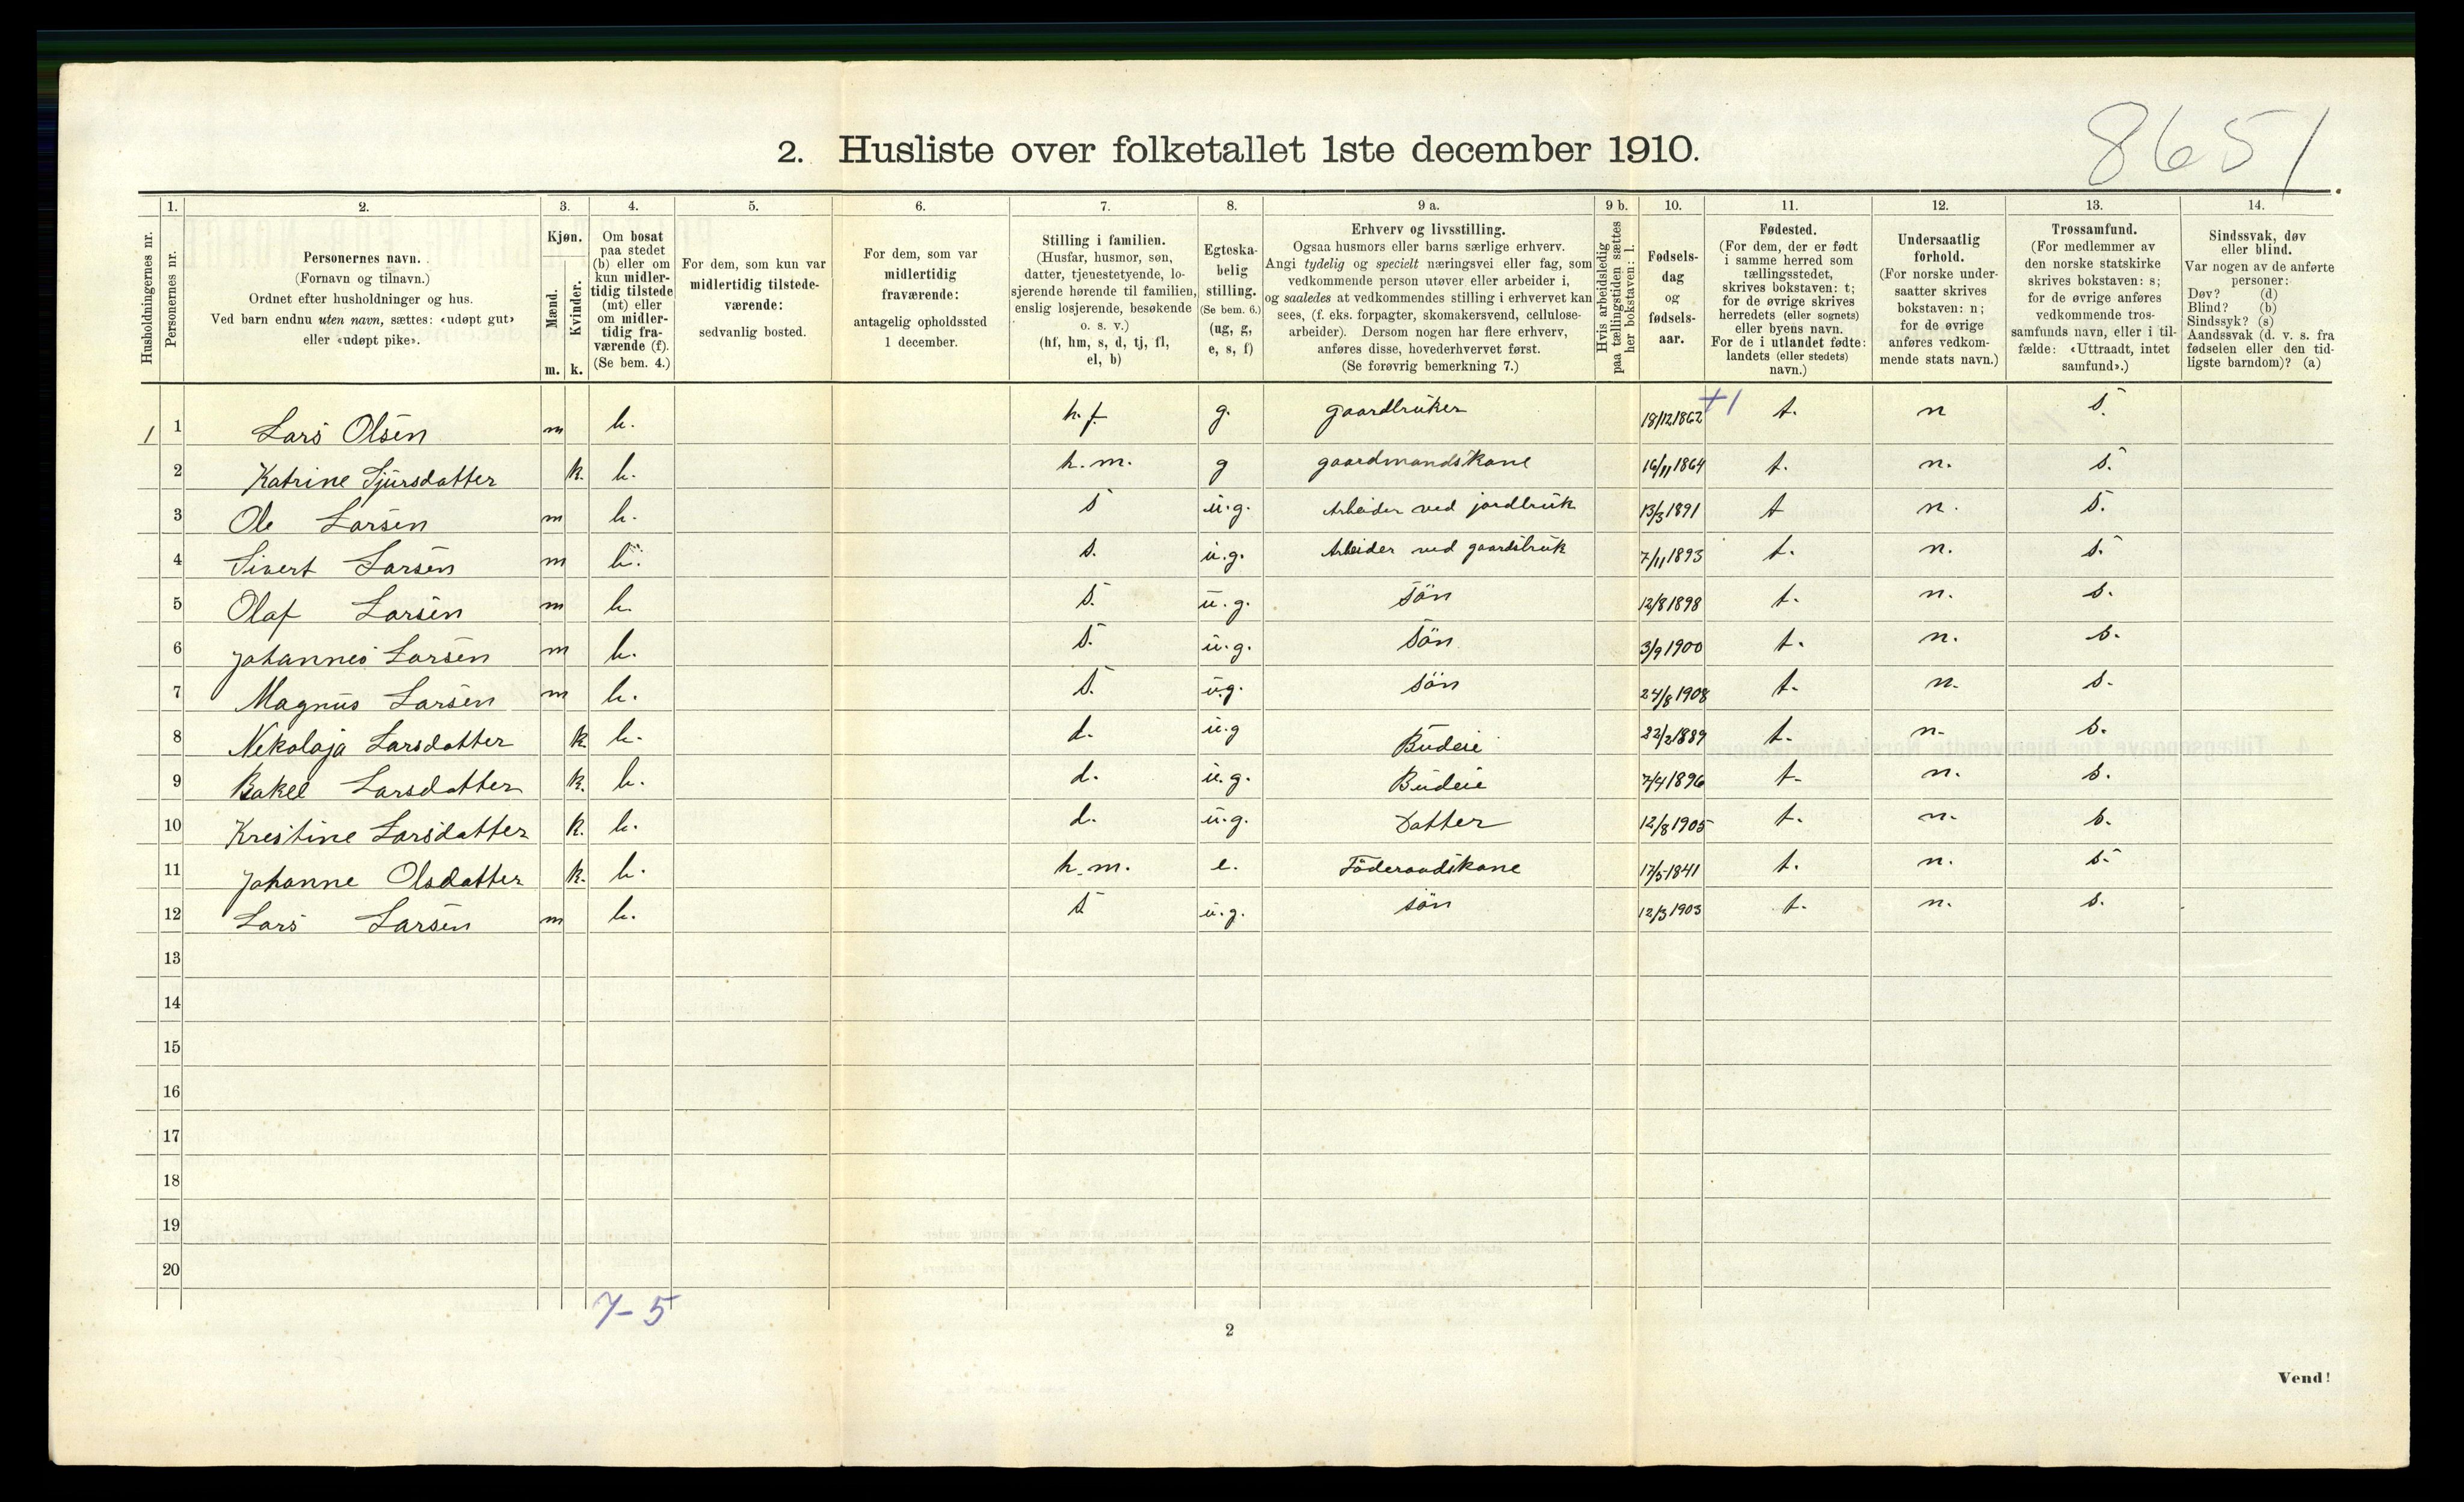 8651
2. Husliste over folketallet 1ste december 1910.
1. 2. 3. 4. 5. 6. 7. 8. 9 a. 9 b. 10. 11. 12. 13. 14.
Husholdningernes nr.
Personernes nr.
Personernes navn.
(Fornavn og tilnavn.)
Ordnet efter husholdninger og hus.
Ved barn endnu uten navn, sættes: «udøpt gut»
eller «udøpt pike».
Kjøn.
Mænd.
Kvinder.
m. k.
Om bosat
paa stedet
(b) eller om
kun midler-
tidig tilstede
(mt) eller
om midler-
tidig fra-
værende (f).
(Se bem. 4.)
For dem, som kun var
midlertidig tilstede-
værende:
sedvanlig bosted.
For dem, som var
midlertidig
fraværende:
antagelig opholdssted
1 december.
Stilling i familien.
(Husfar, husmor, søn,
datter, tjenestetyende, lo-
sjerende hørende til familien,
enslig losjerende, besøkende
o. s. v.)
(hf, hm, s, d, tj, fl,
el, b)
Egteska-
belig
stilling.
(Se bem. 6.)
(ug, g,
e, s, f)
Erhverv og livsstilling.
Ogsaa husmors eller barns særlige erhverv.
Angi tydelig og specielt næringsvei eller fag, som
vedkommende person utøver eller arbeider i,
og saaledes at vedkommendes stilling i erhvervet kan
sees, (f. eks. forpagter, skomakersvend, cellulose-
arbeider). Dersom nogen har flere erhverv,
anføres disse, hovederhvervet først.
(Se forøvrig bemerkning 7.)
Hvis arbeidsledig
paa tællingstiden sættes
her bokstaven: l.
Fødsels-
dag
og
fødsels-
aar.
Fødested.
(For dem, der er født
i samme herred som
tællingsstedet,
skrives bokstaven: t;
for de øvrige skrives
herredets (eller sognets)
eller byens navn.
For de i utlandet fødte:
landets (eller stedets)
navn.)
Undersaatlig
forhold.
(For norske under-
saatter skrives
bokstaven: n;
for de øvrige
anføres vedkom-
mende stats navn.)
Trossamfund.
(For medlemmer av
den norske statskirke
skrives bokstaven: s;
for de øvrige anføres
vedkommende tros-
samfunds navn, eller i til-
fælde: «Uttraadt, intet
samfund».)
Sindssvak, døv
eller blind.
Var nogen av de anførte
personer:
Døv? (d)
Blind? (b)
Sindssyk? (s)
Aandssvak (d. v. s. fra
fødselen eller den tid-
ligste barndom)? (a)
1 1 Lars Olsen m b. h.f. g. gaardbruker 18/12 1862 +1 t. n s.
2 Katrine Sjursdatter k. b. h.m. g gaardmandskone 16/11 1864 t. n. s.
3 Ole Larsen m b. s u.g. Arbeider ved jordbruk 13/3 1891 t n. s.
4 Sivert Larsen m b. s. u.g. Arbeider ved gaardsbruk 7/11 1893 t. n. s.
5 Olaf Larsen m b. s. u.g. sön 12/8 1898 t. n. s.
6 Johannes Larsen m b. s. u.g. sön 3/9 1900 t. n. s.
7 Magnus Larsen m b. s. u.g. sön 24/8 1908 t. n. s.
8 Nekolaja Larsdatter k b. d. u.g Budeie 22/2 1889 t. n. s.
9 Rakel Larsdatter k. b. d. u.g. Budeie 7/4 1896 t. n. s.
10 Kristine Larsdatter k. b. d. u.g. Datter 12/8 1905 t. n. s.
11 Johanne Olsdatter k. b. h.m. e. Föderaadskone 17/5 1841 t. n. s.
12 Lars Larsen m b. s u.g. sön 12/3 1903 t. n. s.
13
14
15
16
17
18
19
20
7-5
2
Vend!